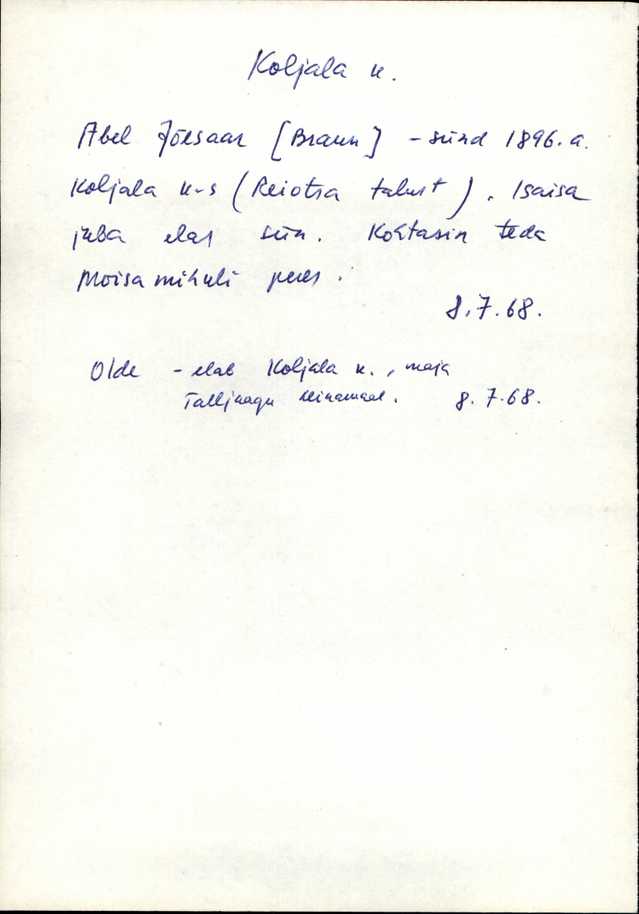 Koljala k.
Abel Jõesaar [Braun] - sünd 1896. a.
Koljala k-s (Reiotsa talust). Isaisa
juba elas siin. Kohtasin teda
Mõisamihkli peres.
8.7.68.
Olde - elab Koljala k., maja
heinamaal. 8.7.68.